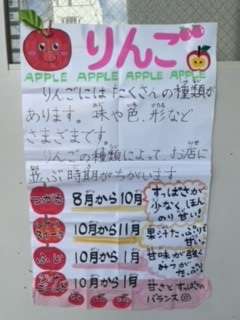 りんご
APPLE APPLE APPLE APPLE
りんごにはたくさんの種類が
あります。味や色、形など
さまざまです。
りんごの種類によって、お店に
並ぶ時期がちがいます。
つがる 8月から10月 すっぱさが少なく、ほんのり甘い!
10月から11月 果汁たっぷりで甘い!
ふじ 10月から1月 甘味が強くみつがたっぷり
10月から1月 甘さとすっぱさのバランス◎